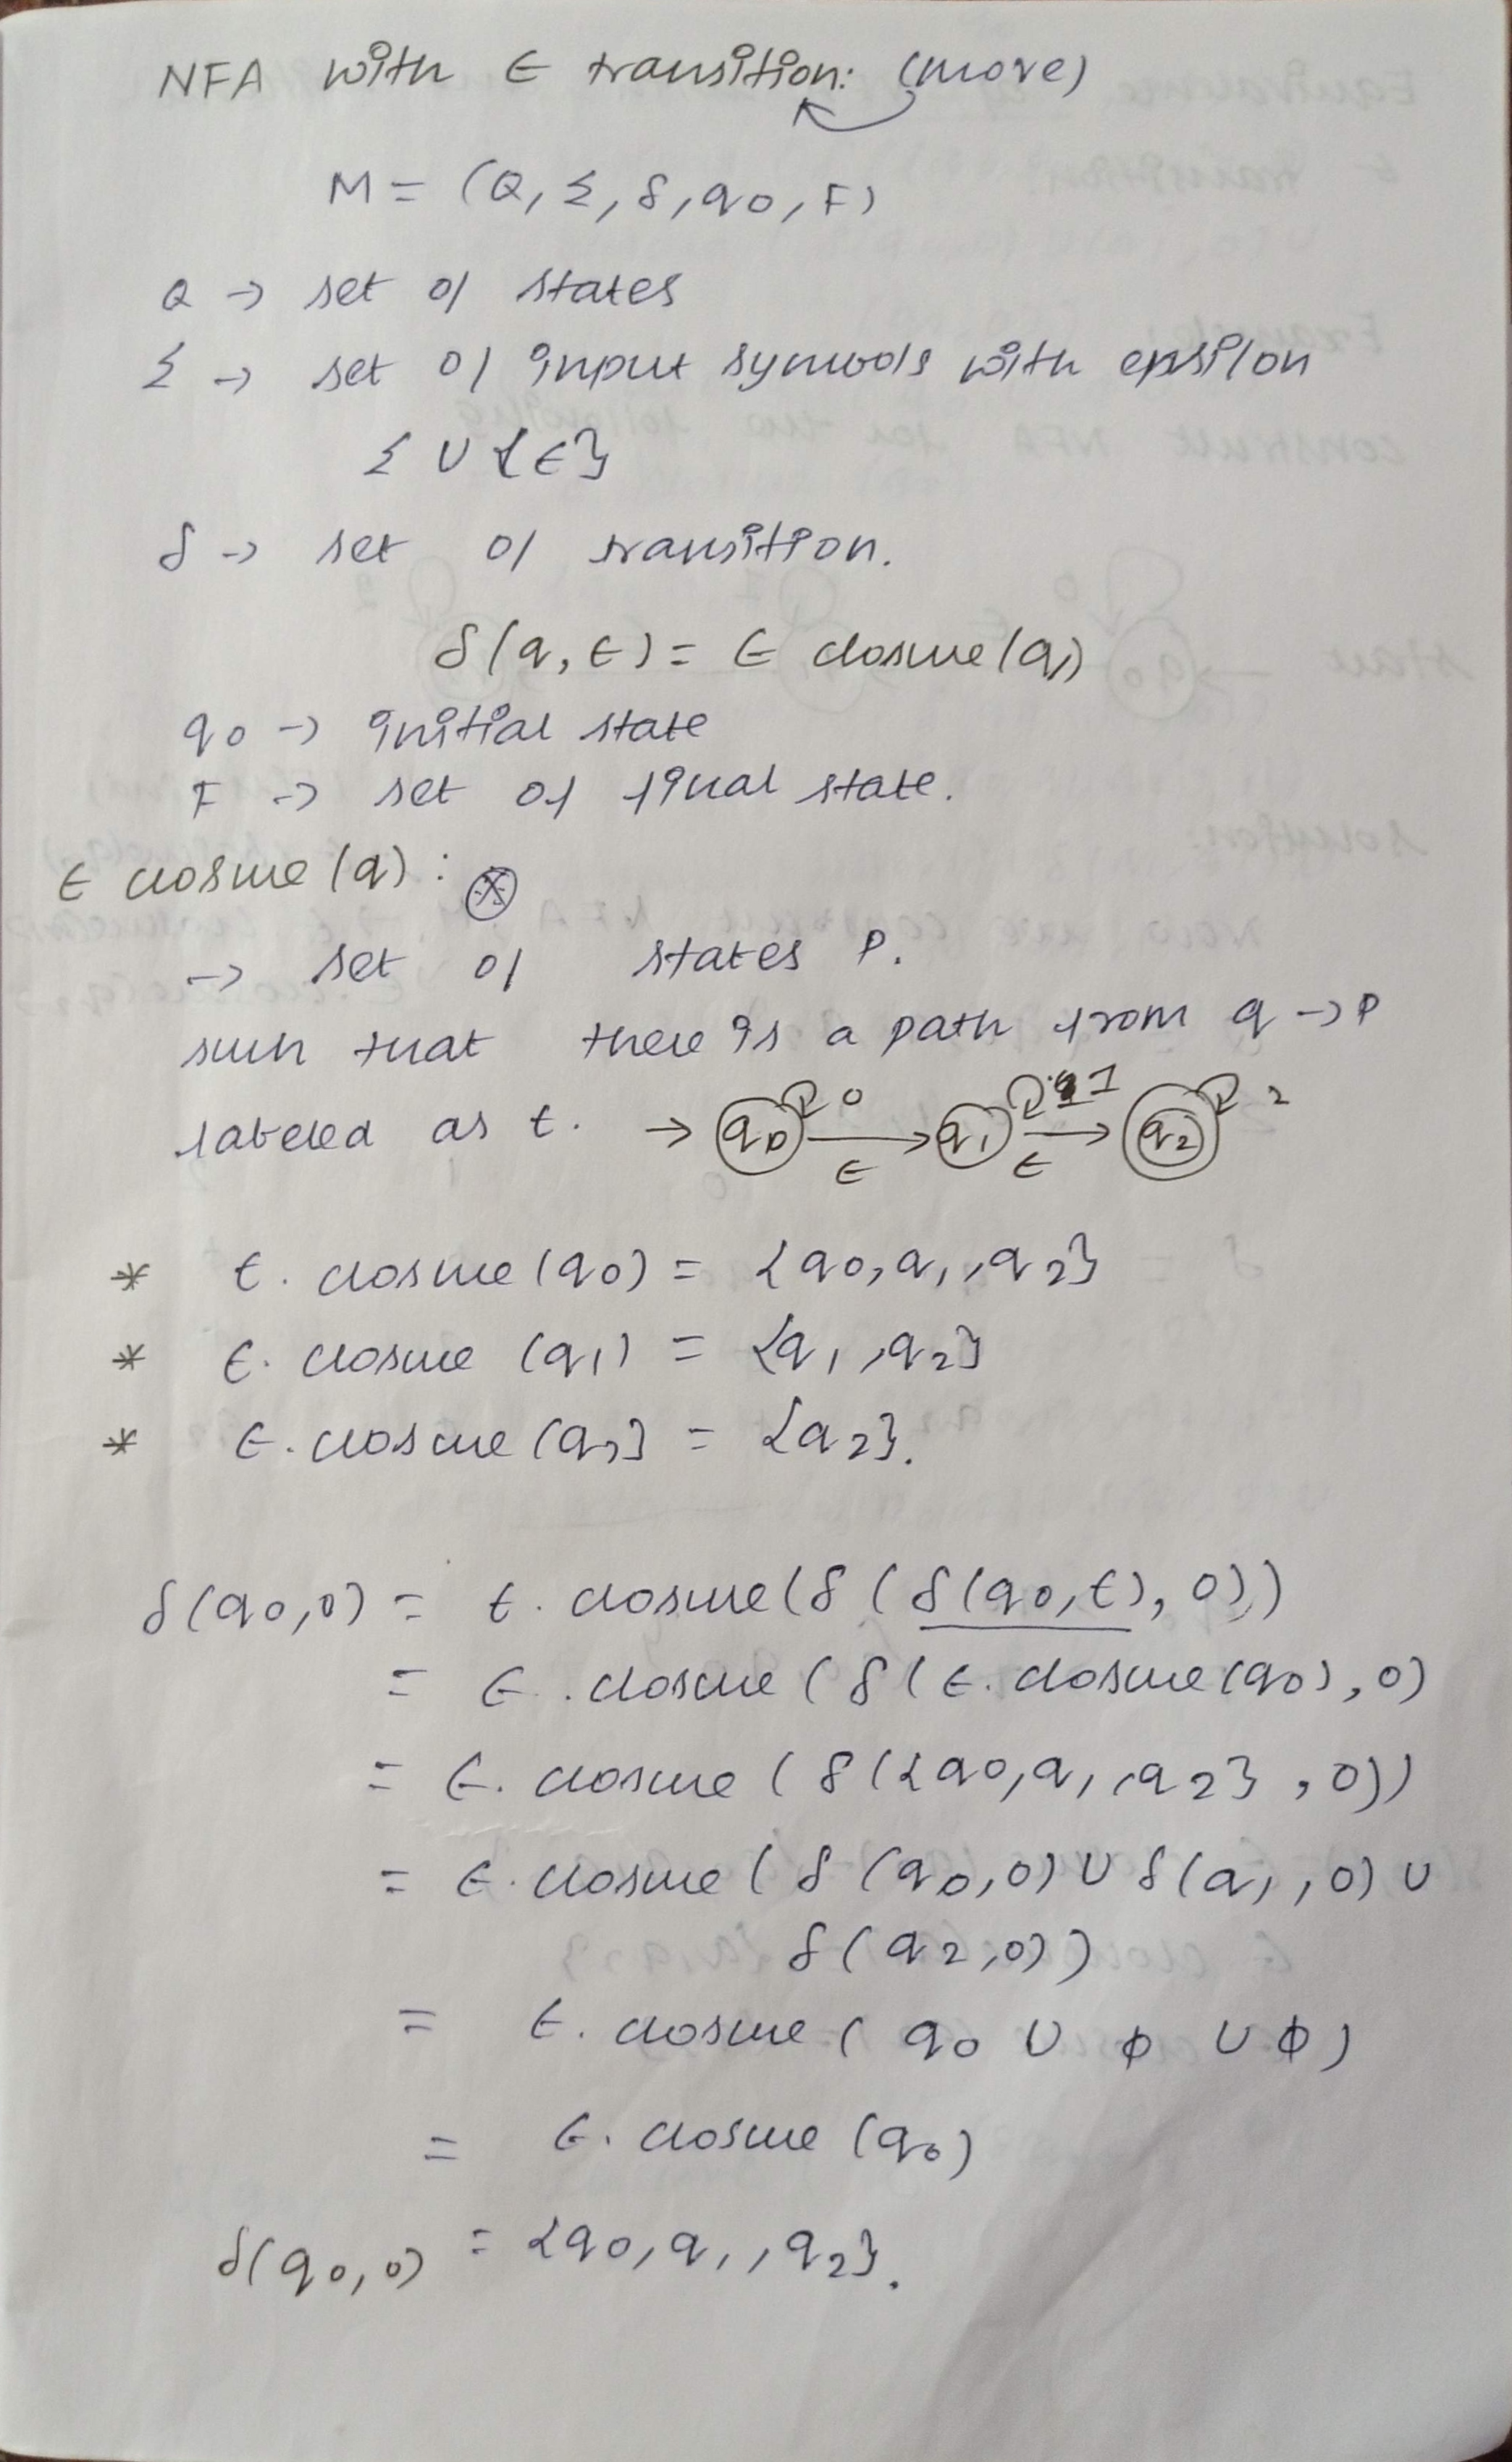 NFA with ∈ transition: (move)
M = (Q, Σ, δ, q0, F)
Q → set of states
Σ → set of input symbols with epsilon
Σ ∪ {∈}
δ → set of transition.
δ(q, ∈) = ∈ closure(q)
q0 → initial state
F → set of final state.
∈ closure (q) :
→ set of states P.
such that there is a path from q → P
labeled as ∈. → q0 0 ∈ q1 1 ∈ q2 2
* ∈. closure (q0) = {q0, q1, q2}
* ∈. closure (q1) = {q1, q2}
* ∈. closure (q2} = {q2}.
δ(q0, 0) = ∈. closure(δ ( δ(q0, ∈), 0))
= ∈. closure (δ (∈. closure (q0), 0)
= ∈. closure (δ ({q0, q1, q2}, 0))
= ∈. closure (δ (q0, 0) ∪ δ(q1, 0) ∪
δ(q2, 0))
= ∈. closure ( q0 ∪ ϕ ∪ ϕ)
= ∈. closure (q0)
δ(q0, 0) = {q0, q1, q2}.